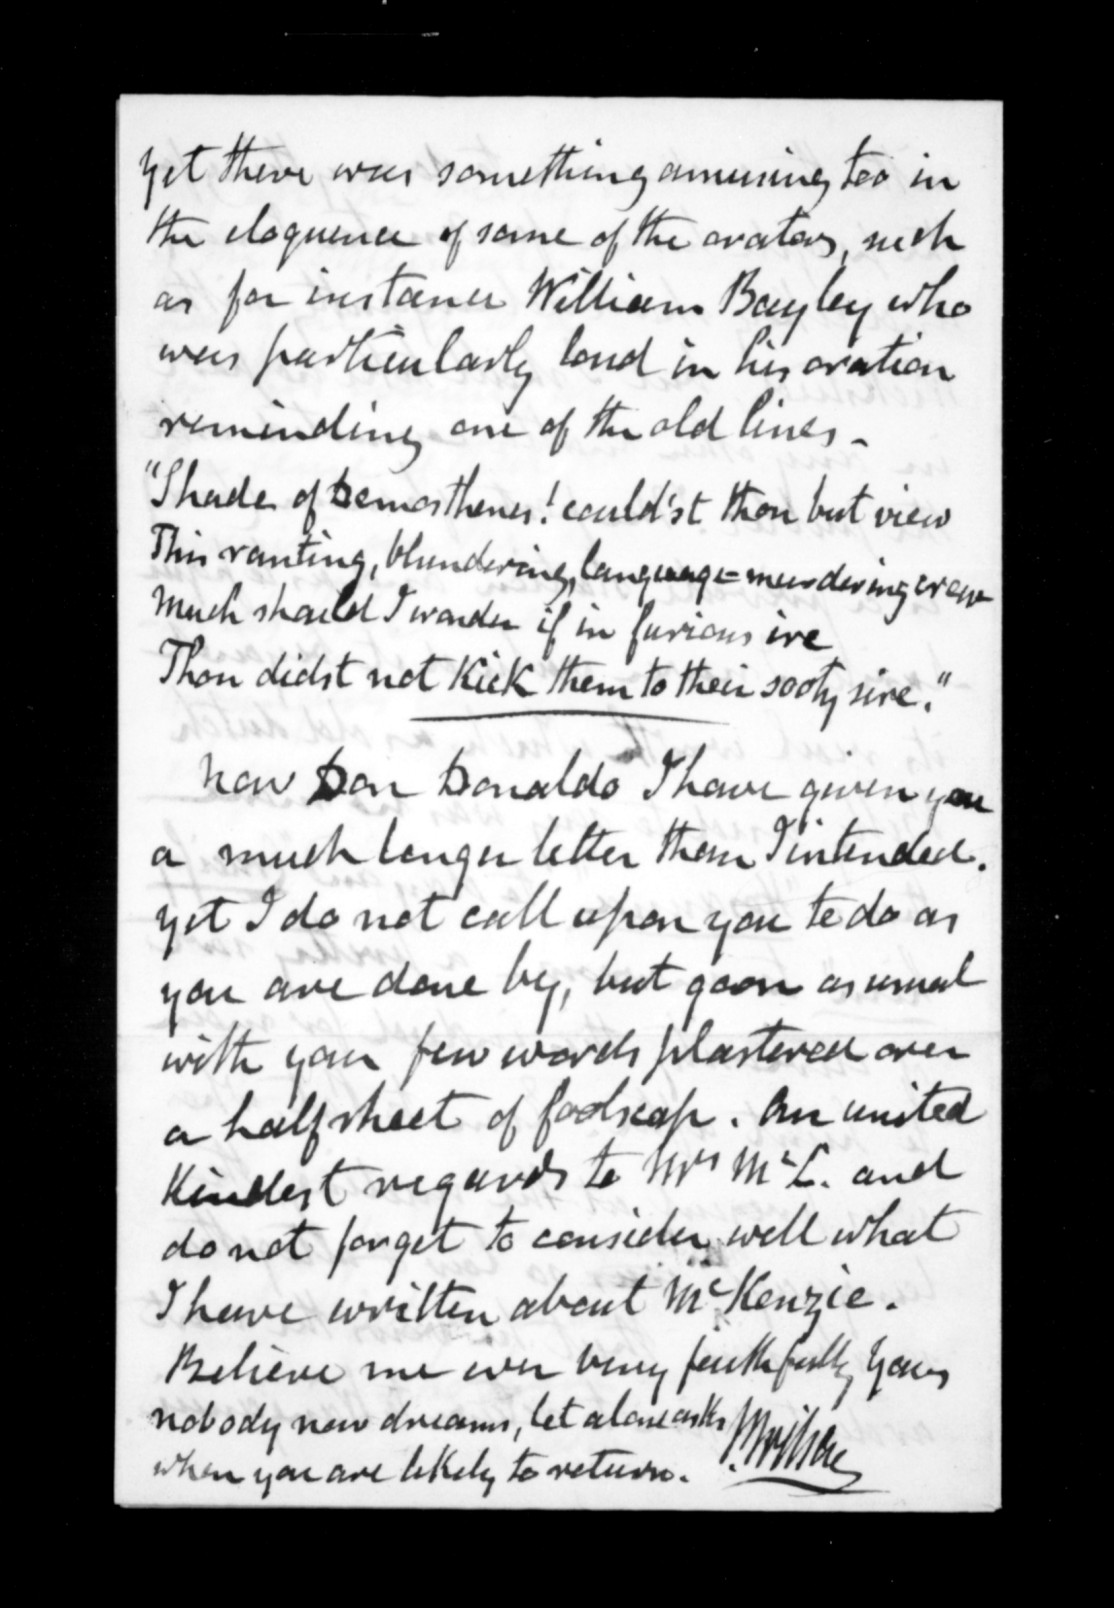 yet there was something amusing too in
the eloquence of some of the orators, such
as for instance William Bayley who
was particularly loud in his oration
reminding one of the old lines -
"Shade of Demosthenes! could'st thou but view
This ranting, blundering, language-murdering crew
Much should I wonder if in furious ire
Thou didst not Kick them to their sooty sire."
Now Don Donaldo I have given you
a much longer letter than I intended.
yet I do not call upon you to do as
you are done by, but go on as usual
with your few words plastered over
a half sheet of foolscap. Our united
Kindest regards to Mrs McL. and
do not forget to consider well what
I have written about McKenzie.
Believe me ever very faithfully Yours
nobody now dreams, let alone asks
when you are likely to return.